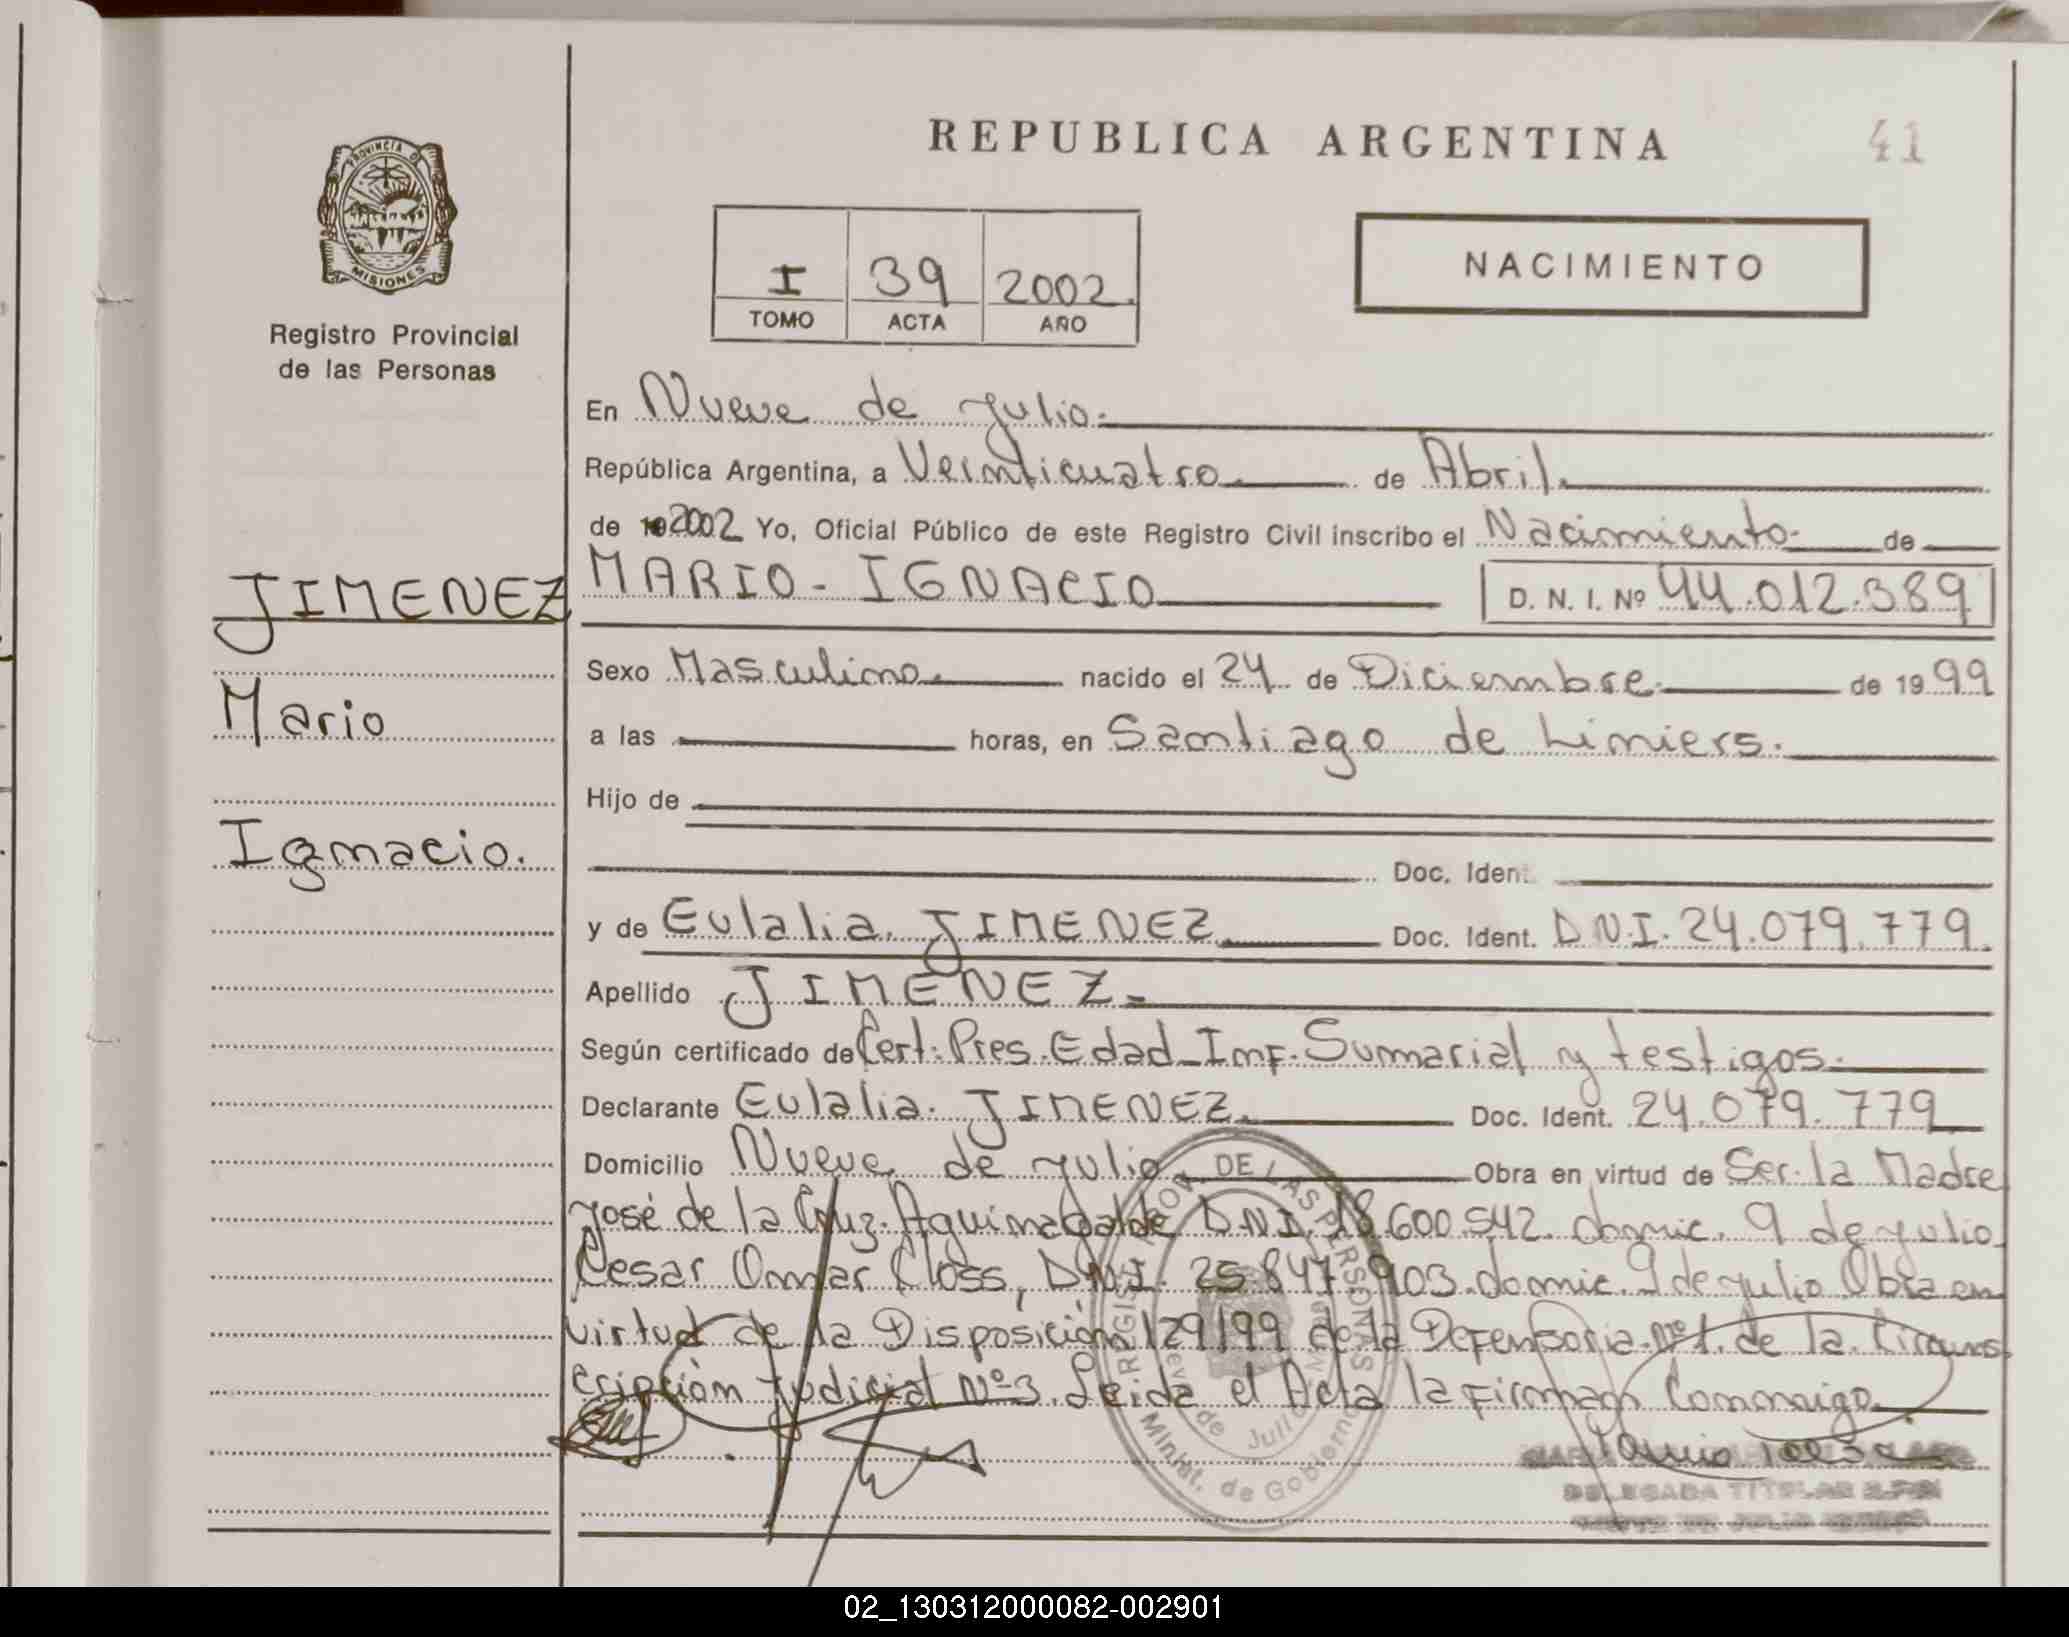 PROVINCIA DE
MISIONES
Registro Provincial
de las Personas
JIMENEZ
Mario
Ignacio.
REPUBLICA ARGENTINA
41
I 39 2002.
TOMO ACTA AÑO
NACIMIENTO
En Nueve de Julio.
República Argentina, a Veinticuatro de Abril.
de 2002 Yo, Oficial Público de este Registro Civil inscribo el Nacimiento de
MARIO - IGNACIO D. N. I. Nº 44.012.389
Sexo Masculino. nacido el 24 de Diciembre de 1999
a las horas, en Santiago de Liniers.
Hijo de
Doc. Ident.
y de Eulalia JIMENEZ Doc. Ident. D.N.I. 24.079.779.
Apellido JIMENEZ
Según certificado de Cert. Pres. Edad - Inf. Sumarial y testigos.
Declarante Eulalia JIMENEZ. Doc. Ident. 24.079.779
Domicilio Nueve de Julio Obra en virtud de Ser la Madre
José de la Cruz D.N.I. 18.600.542. domic. 9 de Julio
Cesar Omar Closs, D.N.I. 25.847.903. domic. 9 de Julio Obra en
virtud de la Disposición 129/99 de la Defensoria Nº1. de la Circuns
cripción Judicial Nº3. Leida el Acta la Firman Conmigo.
REGIST. PROV. DE LAS PERSONAS
Nueve de Julio
Minist. de Gobierno
DELEGADA TITULAR
02_130312000082-002901